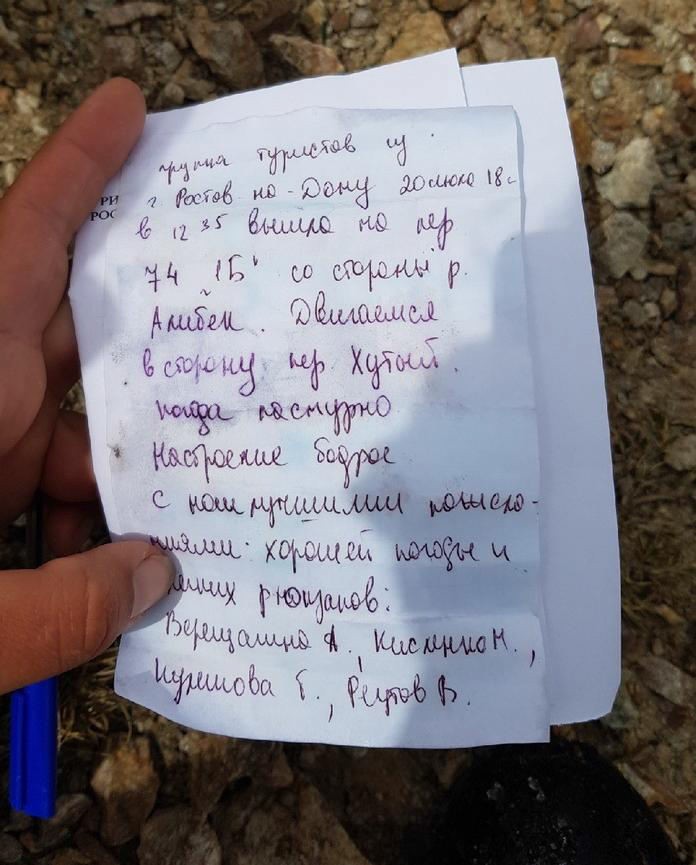 группа туристов из
г. Ростов на-Дону 20 июля 18г
в 12 35 вышла на пер
74 "1Б" со стороны р.
Алибек. Двигаемся
в сторону пер Хутый.
погода пасмурно
Настроение бодрое
с наилучшими пожела-
ниями: хорошей погоды и
легких рюкзаков:
Верещагина А., Кисленко Н.,
Кулешова Е., Реутов В.
РИ
РОС